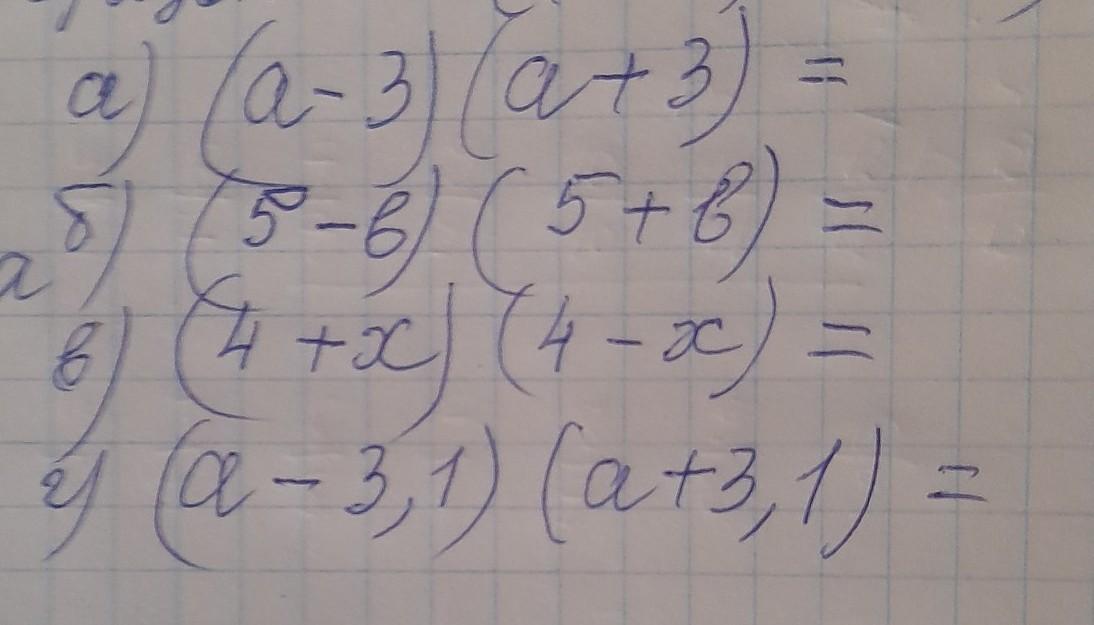 а) (a-3)(a+3)=
б) (5-в)(5+в)=
в) (4+x)(4-x)=
г) (a-3,1)(a+3,1)=